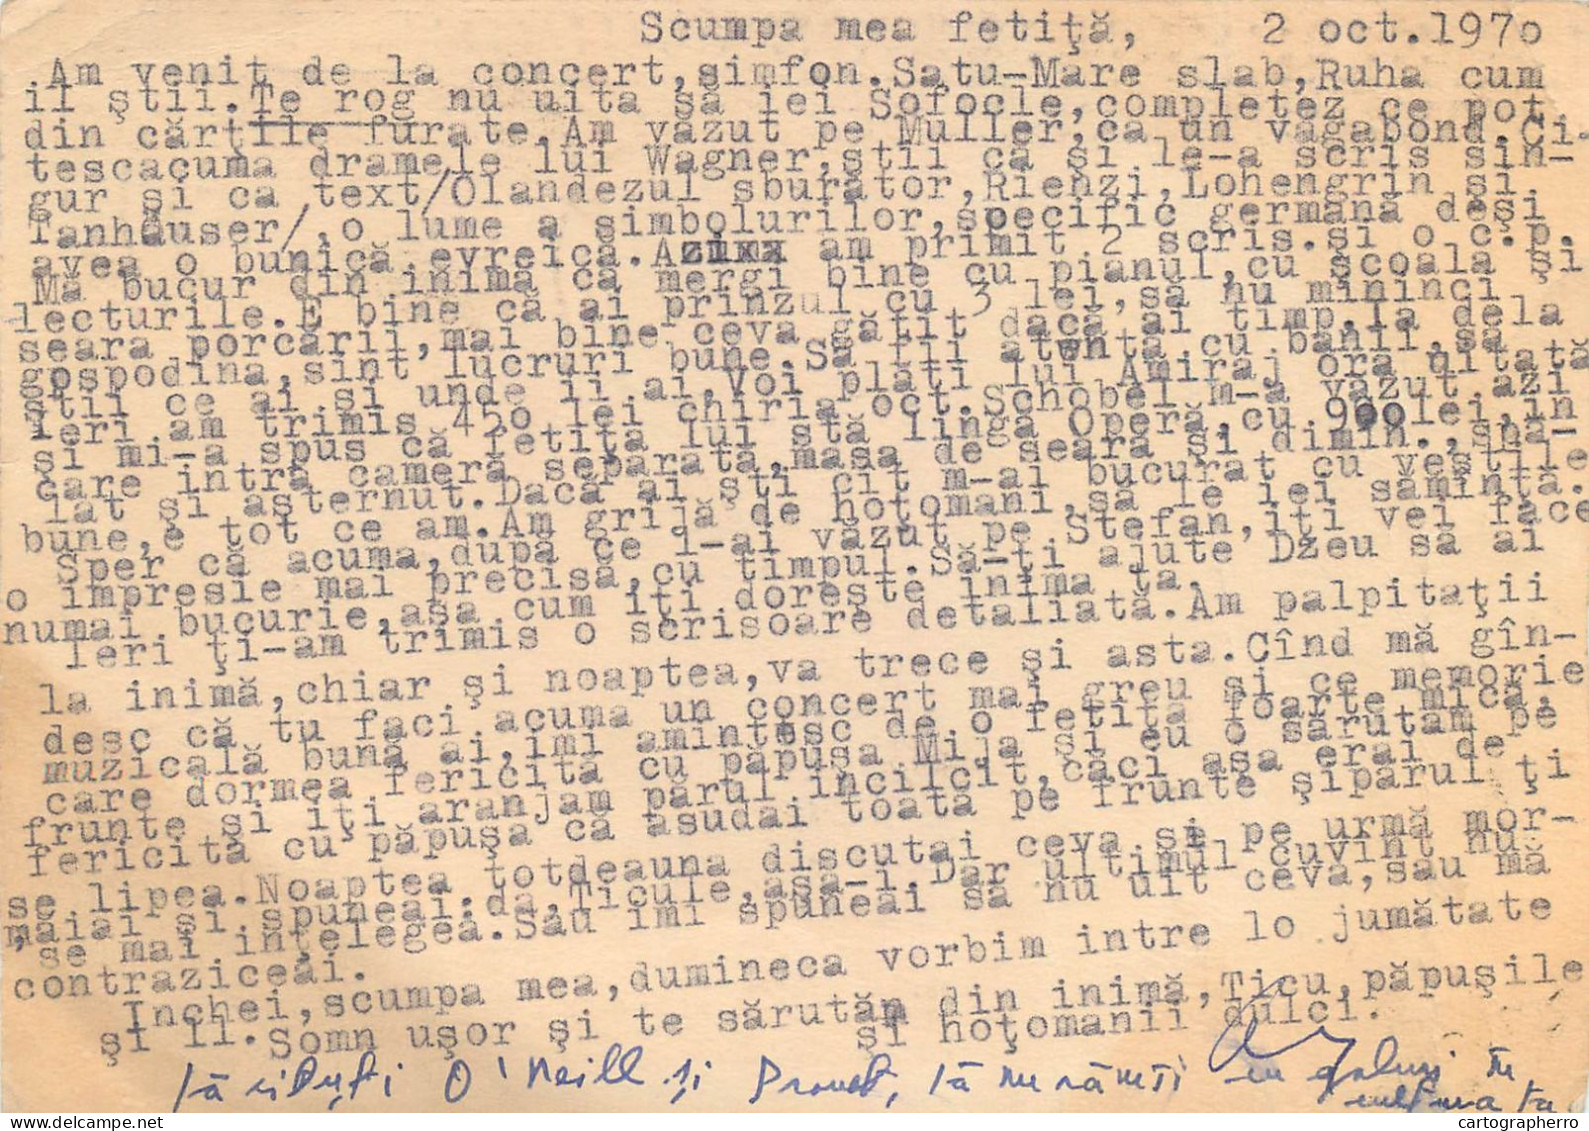 Scumpa mea fetiţă, 2 oct.1970
.Am venit de la concert,simfon.Satu-Mare slab,Ruha cum
il ştii.Te rog nu uita să iei Sofocle,completez ce pot
din cărţile furate.Am văzut pe Muller,ca un vagabond.Ci-
tescacuma dramele lui Wagner,ştii că şi le-a scris sin-
gur şi ca text/Olandezul sburător,Rienzi,Lohengrin şi
Tanhäuser/,o lume a simbolurilor,specific germană deşi
avea o bunică evreică.Azixx am primit 2 scris.şi o c.p.
Mă bucur din inimă că mergi bine cu pianul,cu şcoala şi
lecturile.E bine că ai prînzul cu 3 lei,să nu mininci
seara porcării,mai bine ceva gătit dacă ai timp,ia dela
gospodina,sint lucruri bune.Să fii atentă cu banii,să
ştii ce ai şi unde ii ai.Voi plăti lui Amiraj ora uitată
Ieri am trimis 450 lei chiria oct.Schobel m-a văzut azi
şi mi-a spus că fetiţa lui stă lingă Operă,cu 900lei,in-
care intră cameră separată,masa de seară şi dimin.,spă-
lat şi aşternut.Dacă ai şti cit m-ai bucurat cu veştile
bune,e tot ce am.Am grijă de hoţomani,să le iei sămintă.
Sper că acuma,după ce l-ai văzut pe Stefan,iţi vei face
o impresie mai precisă,cu timpul.Să-ţi ajute Dzeu să ai
numai bucurie,aşa cum iţi doreşte inima ta.
Ieri ţi-am trimis o scrisoare detaliată.Am palpitaţii
la inimă,chiar şi noaptea,va trece şi asta.Cînd mă gîn-
desc că tu faci acuma un concert mai greu şi ce memorie
muzicală bună ai,imi amintesc de o fetiţă foarte mică,
care dormea fericită cu păpuşa Mija şi eu o sărutam pe
frunte şi iţi aranjam părul incîlcit,căci aşa erai de
fericită cu păpuşa că asudai toată pe frunte şipărul ţi
se lipea.Noaptea totdeauna discutai ceva şi pe urmă mor-
măiai şi spuneai:da,Ticule,aşa-i.Dar ultimul cuvint nu
se mai inţelegea.Sau imi spuneai să nu uit ceva,sau mă
contraziceai.
Inchei,scumpa mea,dumineca vorbim intre 10 jumătate
şi 11.Somn uşor şi te sărutăm din inimă,Ticu,păpuşile
şi hoţomanii dulci.
să citeşti O'Neill şi Proust, să nu rămîi cu goluri în
cultura ta.
cartographerro